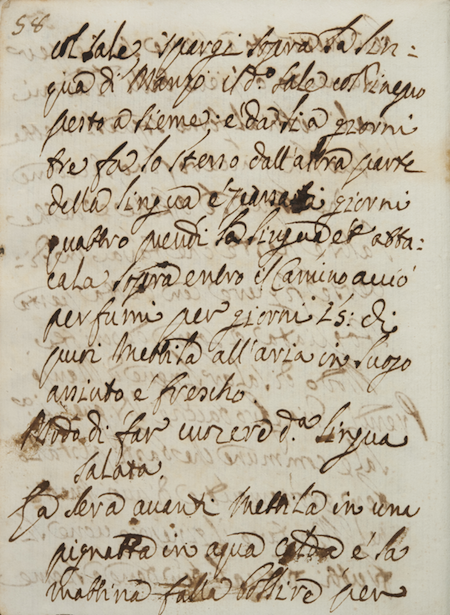 58
col sale, spargi sopra la lin=
gua di Manzo il d.º sale col Zinepro
pesto a sieme; e da li a giorni
tre fa lo stesso dall'altra parte
della lingua e giorni
quattro prendi la lingua et atta=
cala sopra entro il Camino acciò
perfumi per giorni 15: di
puoi mettila all'aria in luogo
assiuto e frescho.
Modo di far cuozere d.ª lingua
salata.
La sera avanti mettila in una
pignatta in aqua calda e la
mattina falla bollire per